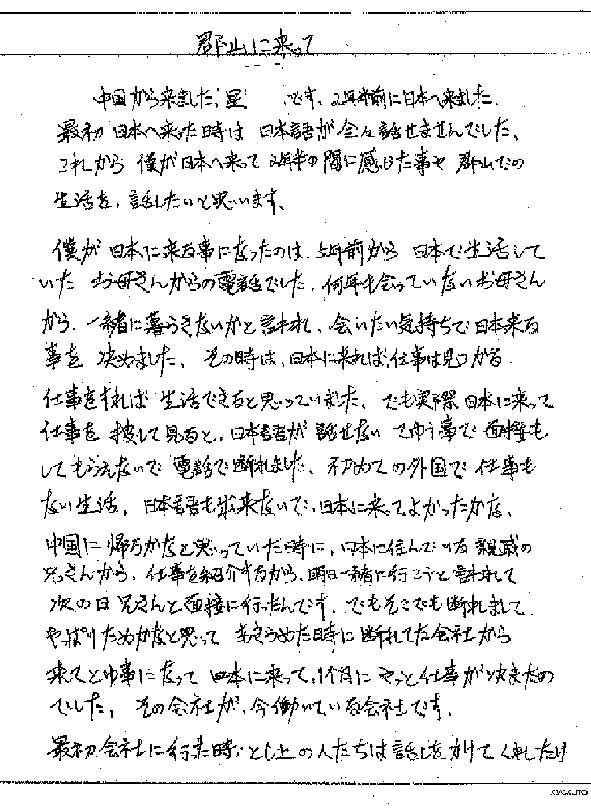 郡山に来って
中国から来ました、星 です、2年半前に日本へ来ました。
最初 日本へ来った時は 日本語が全々話せませんでした、
これから 僕が日本へ来って 2年半の間に感じた事や 郡山での
生活を、話したいと思います、
僕が 日本に来る事になったのは 5年前から 日本で生活して
いた お母さんからの電話でした、何年も会っていないお母さん
から、一緒に暮らさないかと言われ、会いたい気持ちで日本来る
事を 決めました、その時は、日本に来れば、仕事は見つかる
仕事をすれば 生活できると思っていました、でも実際日本に来って
仕事を 捜して見ると、日本語が話せない てゆう事で 面接も
してもらえないで 電話で断れました、初めての外国で 仕事も
ない生活、日本語も出来ないで、日本に来ってよかったかな、
中国に帰ろかなと思っていた時に、日本に住んでいる親戚の
兄さんから、仕事を紹介するから、明日一緒に行こうと言われて
次の日 兄さんと面接に行ったんです、でもそこでも断れまして
やっぱりだめかなと思って あきらめた時に 断れてた会社から
来てとゆ事になって 日本に来って、1ケ月に やっと仕事が決またの
でした、その会社が、今働いている会社です、
最初会社に行った時、とし上の人たちは 話しをかけてくれしたけ